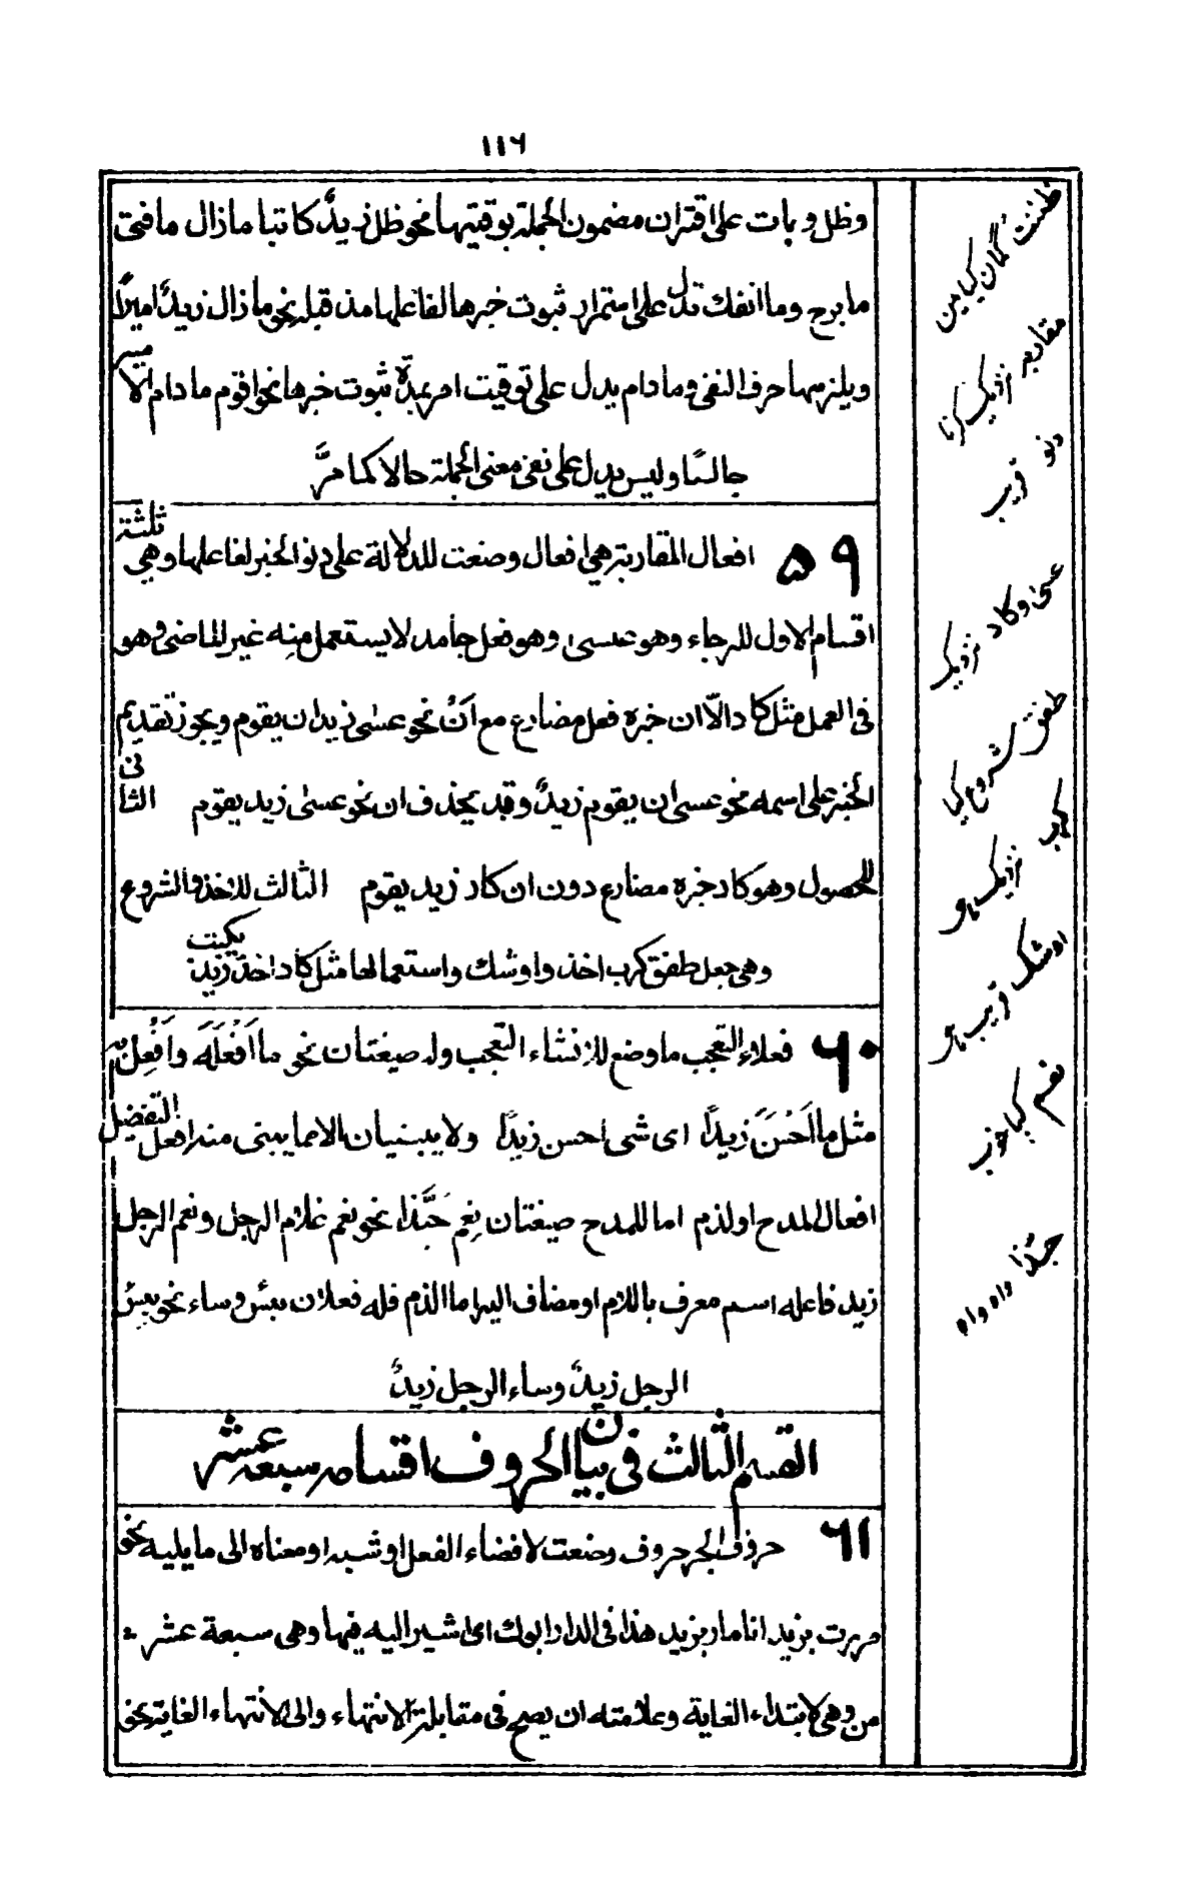 ۱۱۶
وظل وبات على اقتران مضمون الجملة بوقتيها نحو ظل زيدٌ كاتبا مازال ما فتى
ما برح وما انفك تدل على استمرار ثبوت خبرها لفاعلها مذ قبله نحو ما زال زيدٌ اميرًا
ويلزمها حرف النفى وما دام يدل على توقيت امر بمدّة ثبوت خبرها نحو اقوم ما دام الامير
جالسًا وليس يدل على نفى معنى الجملة حالا كما مرَّ
۵۹ افعال المقاربة هى افعال وضعت للدلالة على دنو الخبر لفاعلها وهى ثلثة
اقسام الاول للرجاء وهو عسىٰ وهو فعل جامد لا يستعمل منه غير الماضى وهو
فى العمل مثل كاد الّا ان خبره فعل مضارع مع اَنْ نحو عسىٰ زيد ان يقوم ويجوز تقديم
الخبر على اسمه نحو عسى ان يقوم زيدٌ وقد يحذف ان نحو عسىٰ زيد يقوم الثانى
للحصول وهو كاد خبره مضارع دون ان كاد زيد يقوم الثالث للاخذ والشروع
وهى جعل طفق كرب اخذ واوشك واستعمالها مثل كاد اخذ زيد يكتب
۶۰ فعلاء التعجب ما وضع للانشاء التعجب وله صيغتان نحو ما اَفْعَلَهُ واَفْعِلْ به
مثل ما اَحْسَنَ زيدًا اى شى احسن زيدًا ولا يبنيان الا مما يبنى منه افعل التفضيل
افعال المدح او لذم اما للمدح صيغتان نِعْمَ حَبَّذا نحو نعم غلام الرجل ونعم الرجل
زيد فاعله اسم معرف باللام او مضاف اليه اما الذم فله فعلان بئس وساء نحو بئس
الرجل زيدٌ وساء الرجل زيدٌ
القسم الثالث فى بيان الحروف اقسامه سبعة عشر
۶۱ حروف الجر حروف وضعت لافضاء الفعل او شبه او معناه الى ما يليه نحو
مررت بزيد انا مار بزيد هذا فى الدار ابوك اى اشير اليه فيها وهى سبعة عشر
من وهى لابتداء الغاية وعلامته ان يصح فى مقابلة الانتهاء والى لانتهاء الغاية نحو
ظننت گمان کیا میں
مقاربہ نزدیک کرنا
دنو قریب
عسىٰ وکاد نزدیک
طفق شروع کیا
کرب نزدیک ہو
اوشک قریب ہو
نعم کیا خوب
حبذا واہ واہ